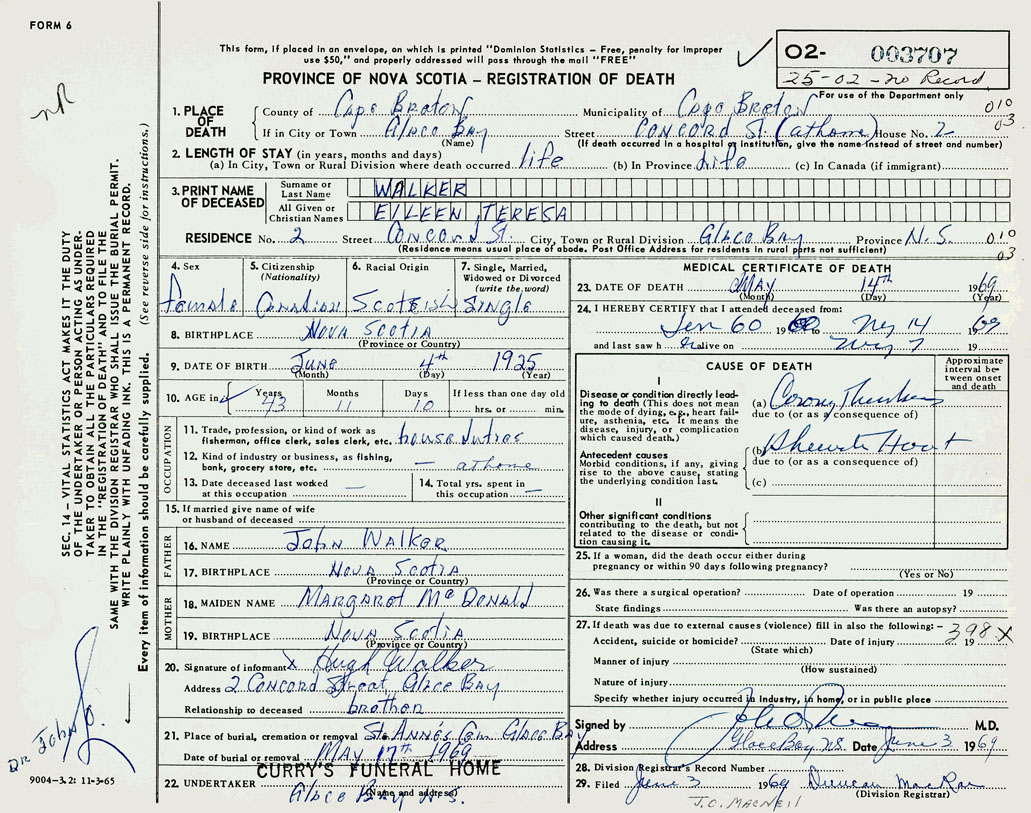 FORM 6
This form, if placed in an envelope, on which is printed "Dominion Statistics – Free, penalty for improper
use $50," and properly addressed will pass through the mail "FREE"
PROVINCE OF NOVA SCOTIA – REGISTRATION OF DEATH
02- 003707
25-02-no Record
For use of the Department only
nR
1. PLACE OF DEATH
County of Cape Breton Municipality of Cape Breton 010
If in City or Town Glace Bay Street Concord St. (at home) House No. 2 03
(Name) (If death occurred in a hospital or institution, give the name instead of street and number)
2. LENGTH OF STAY (in years, months and days)
(a) In City, Town or Rural Division where death occurred life (b) In Province Life (c) In Canada (if immigrant)
3. PRINT NAME OF DECEASED
Surname or Last Name WALKER
All Given or Christian Names EILEEN TERESA
RESIDENCE No. 2 Street Concord St. City, Town or Rural Division Glace Bay Province N.S. 010
(Residence means usual place of abode. Post Office Address for residents in rural parts not sufficient) 03
4. Sex Female
5. Citizenship (Nationality) Canadian
6. Racial Origin Scotish
7. Single, Married, Widowed or Divorced (write the word) Single
8. BIRTHPLACE Nova Scotia
(Province or Country)
9. DATE OF BIRTH June 4th 1925
(Month) (Day) (Year)
10. AGE in Years 43 Months 11 Days 10 If less than one day old hrs. or min.
OCCUPATION
11. Trade, profession, or kind of work as fisherman, office clerk, sales clerk, etc. house duties
12. Kind of industry or business, as fishing, bank, grocery store, etc. – at home
13. Date deceased last worked at this occupation –
14. Total yrs. spent in this occupation –
15. If married give name of wife or husband of deceased
FATHER
16. NAME John Walker
17. BIRTHPLACE Nova Scotia
(Province or Country)
MOTHER
18. MAIDEN NAME Margaret McDonald
19. BIRTHPLACE Nova Scotia
(Province or Country)
20. Signature of informant x Hugh Walker
Address 2 Concord Street, Glace Bay
Relationship to deceased brother
21. Place of burial, cremation or removal St. Anne's Cem Glace Bay
Date of burial or removal May 17th 1969
22. UNDERTAKER CURRY'S FUNERAL HOME
Glace Bay N.S.
(Name and address)
MEDICAL CERTIFICATE OF DEATH
23. DATE OF DEATH May 14th 1969
(Month) (Day) (Year)
24. I HEREBY CERTIFY that I attended deceased from:
60 1960 to 14 1969
and last saw h er alive on 7 19
CAUSE OF DEATH
Approximate interval between onset and death
I
Disease or condition directly leading to death (This does not mean the mode of dying, e.g., heart failure, asthenia, etc. It means the disease, injury, or complication which caused death.)
(a)
due to (or as a consequence of)
Antecedent causes
Morbid conditions, if any, giving rise to the above cause, stating the underlying condition last.
(b)
due to (or as a consequence of)
(c)
II
Other significant conditions contributing to the death, but not related to the disease or condition causing it.
25. If a woman, did the death occur either during pregnancy or within 90 days following pregnancy?
(Yes or No)
26. Was there a surgical operation? Date of operation 19
State findings Was there an autopsy?
27. If death was due to external causes (violence) fill in also the following: – 398x
Accident, suicide or homicide? Date of injury 19
(State which)
Manner of injury
(How sustained)
Nature of injury
Specify whether injury occurred in Industry, in home, or in public place
Signed by M.D.
Address Glace Bay N.S. Date June 3 1969
28. Division Registrar's Record Number
29. Filed June 3 1969 Duncan MacRae
(Division Registrar)
J.C. MACNEIL
SEC. 14 – VITAL STATISTICS ACT MAKES IT THE DUTY
OF THE UNDERTAKER OR PERSON ACTING AS UNDER-
TAKER TO OBTAIN ALL THE PARTICULARS REQUIRED
IN THE "REGISTRATION OF DEATH" AND TO FILE THE
SAME WITH THE DIVISION REGISTRAR WHO SHALL ISSUE THE BURIAL PERMIT.
WRITE PLAINLY WITH UNFADING INK. THIS IS A PERMANENT RECORD.
Every item of information should be carefully supplied. (See reverse side for instructions.)
DR John
9004–3.2: 11-3-65